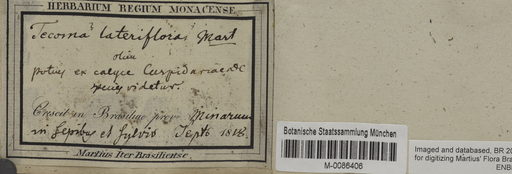 HERBARIUM REGIUM MONACENSE.
Tecoma lateriflora Mart
olim
potius ex calyce Cuspidariae
species videtur.
Crescit in Brasiliae prov. Minarum
in Sepibus et Sylvis Septb 1818.
Martius Iter Brasiliense.
Botanische Staatssammlung München
M-0086406
Imaged and databased, BR 20
for digitizing Martius' Flora Bra
ENB